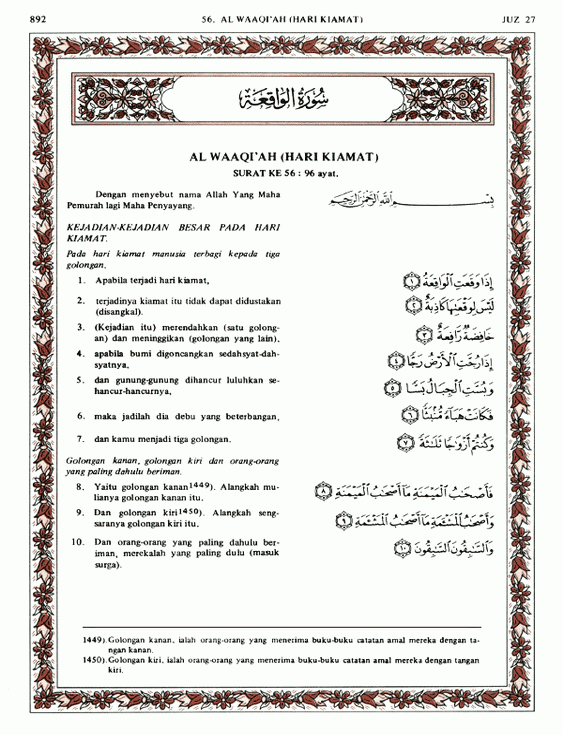 892
56. AL WAAQI'AH (HARI KIAMAT)
JUZ 27
سُورَةُ الوَاقِعَة
AL WAAQI'AH (HARI KIAMAT)
SURAT KE 56 : 96 ayat.
Dengan menyebut nama Allah Yang Maha
Pemurah lagi Maha Penyayang.
بِسْمِ اللَّهِ الرَّحْمَٰنِ الرَّحِيمِ
KEJADIAN-KEJADIAN BESAR PADA HARI
KIAMAT.
Pada hari kiamat manusia terbagi kepada tiga
golongan,
1. Apabila terjadi hari kiamat,
إِذَا وَقَعَتِ الْوَاقِعَةُ ١
2. terjadinya kiamat itu tidak dapat didustakan
(disangkal).
لَيْسَ لِوَقْعَتِهَا كَاذِبَةٌ ٢
3. (Kejadian itu) merendahkan (satu golong-
an) dan meninggikan (golongan yang lain),
خَافِضَةٌ رَّافِعَةٌ ٣
4. apabila bumi digoncangkan sedahsyat-dah-
syatnya,
إِذَا رُجَّتِ الْأَرْضُ رَجًّا ٤
5. dan gunung-gunung dihancur luluhkan se-
hancur-hancurnya,
وَبُسَّتِ الْجِبَالُ بَسًّا ٥
6. maka jadilah dia debu yang beterbangan,
فَكَانَتْ هَبَاءً مُّنْبَثًّا ٦
7. dan kamu menjadi tiga golongan.
وَكُنْتُمْ أَزْوَاجًا ثَلَاثَةً ٧
Golongan kanan, golongan kiri dan orang-orang
yang paling dahulu beriman.
8. Yaitu golongan kanan1449). Alangkah mu-
lianya golongan kanan itu.
فَأَصْحَابُ الْمَيْمَنَةِ مَا أَصْحَابُ الْمَيْمَنَةِ ٨
9. Dan golongan kiri1450). Alangkah seng-
saranya golongan kiri itu.
وَأَصْحَابُ الْمَشْئَمَةِ مَا أَصْحَابُ الْمَشْئَمَةِ ٩
10. Dan orang-orang yang paling dahulu ber-
iman, merekalah yang paling dulu (masuk
surga).
وَالسَّابِقُونَ السَّابِقُونَ ١٠
1449). Golongan kanan, ialah orang-orang yang menerima buku-buku catatan amal mereka dengan ta-
ngan kanan.
1450). Golongan kiri, ialah orang-orang yang menerima buku-buku catatan amal mereka dengan tangan
kiri.